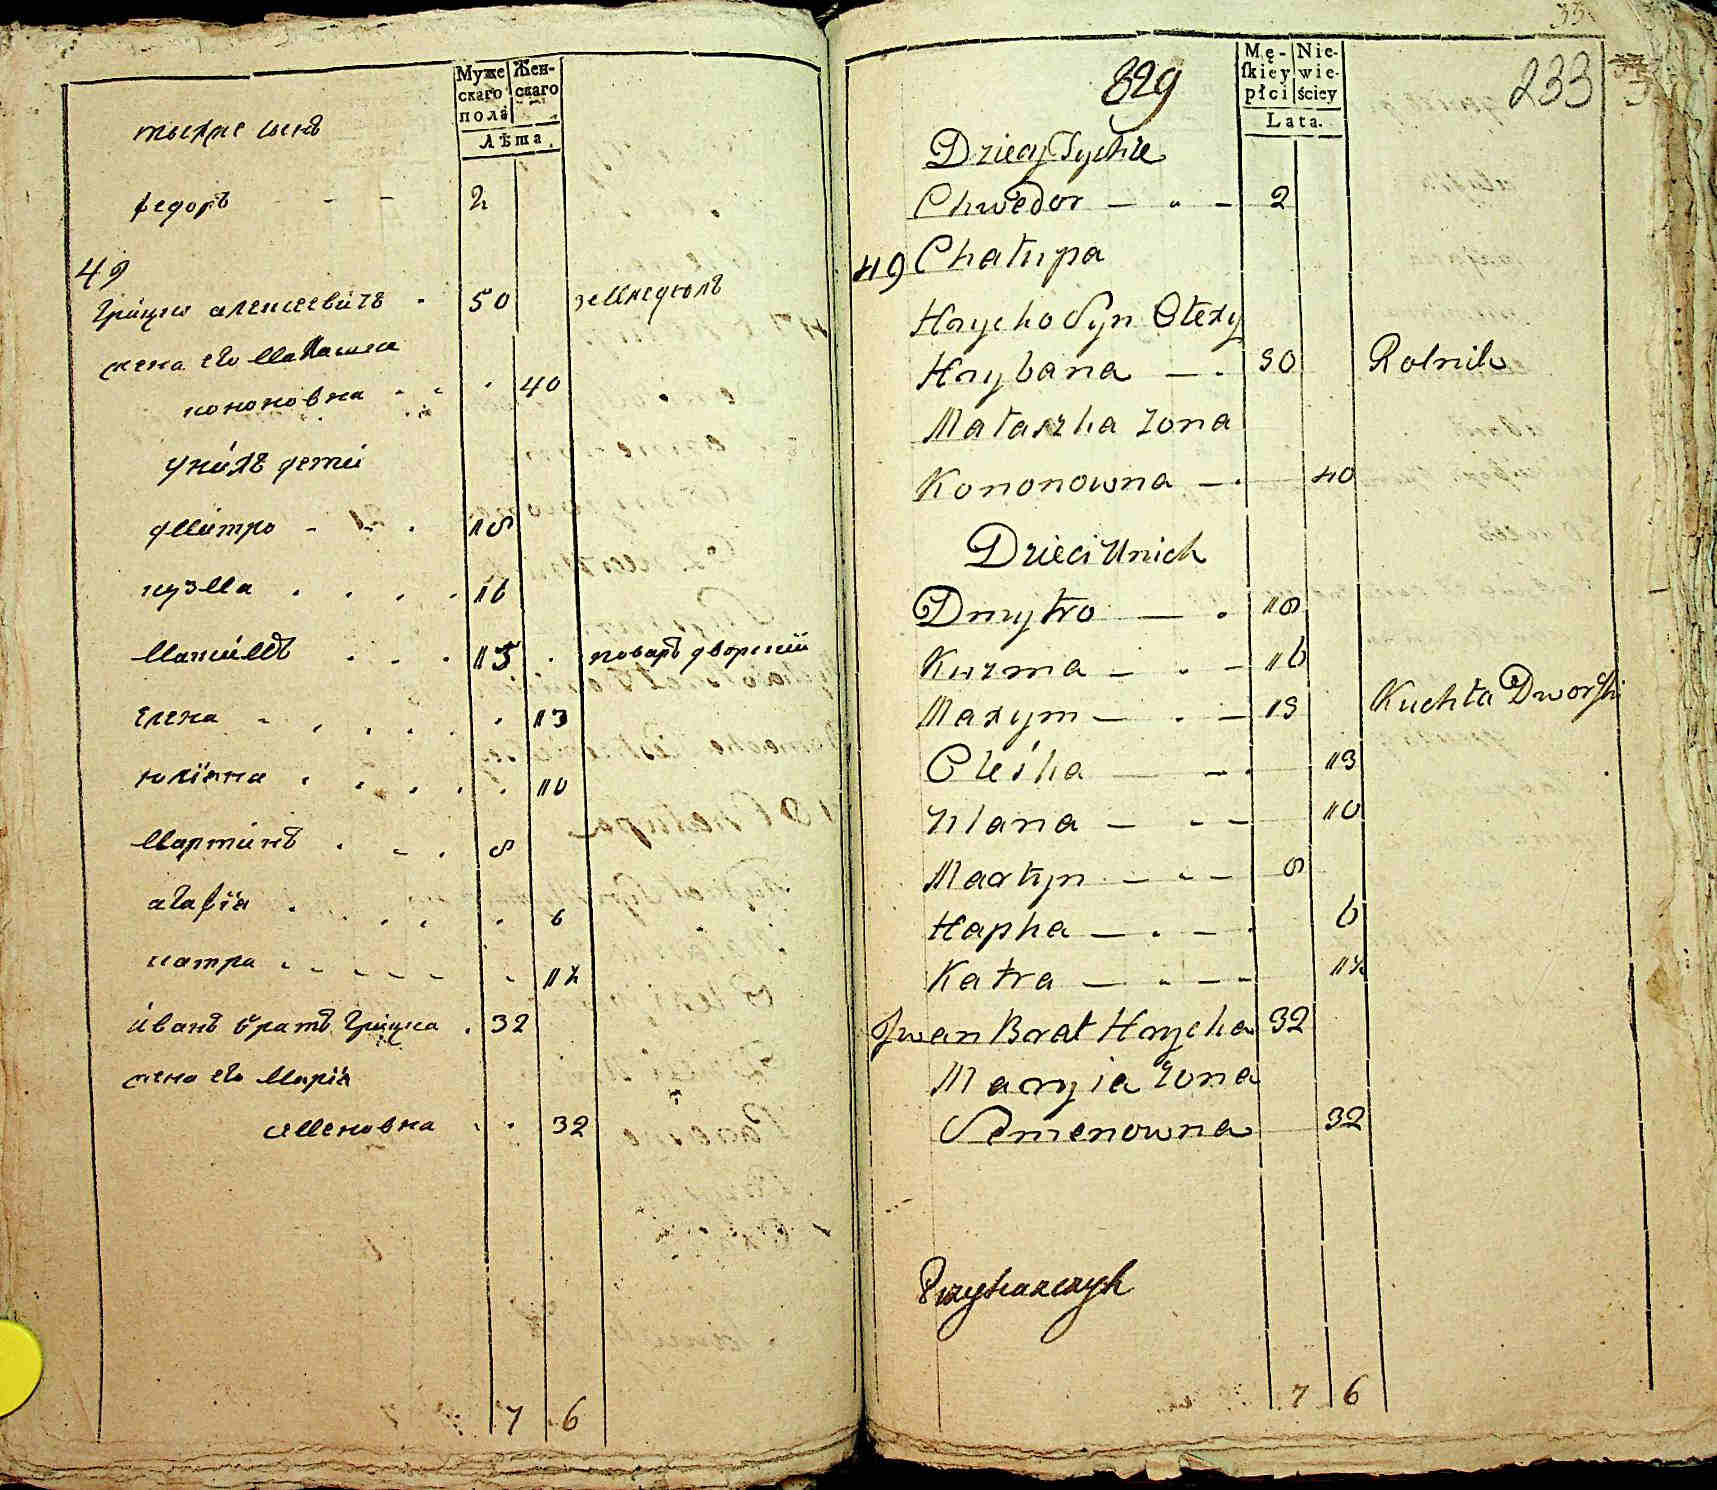 Муже Жен-
скаго скаго
пола
Лѣта.
тыхже сынъ
федоръ - - 2
49
Грицко алексеевичъ - 50 земледелъ
жена его Маташка
кононовна - - - 40
унихъ дети
дмитро - - - 18
кузма . . . . 16
Максимъ . . . 15 . поваръ дворский
елена - . . . . 13
юлїяна . . . . . 10
Мартинъ . - . 8
агафїя . . . . 6
катра . - - - - - 12
иванъ братъ Грицка . 32
жена его Марїя
семеновна - - 32
7 6
33
829
233
Mę- Nie-
skiey wie-
płci ściey
Lata.
Dziecy Tychże
Chwedor — - — 2
49 Chałupa
Hrycko Syn Ołexy
Hrybana — . 50 Rolnik
Małaszka żona
Kononowna — . 40
Dzieci Unich
Dmytro — . 18
Kuzma — . — 16
Maxym — . — 15 Kuchta Dworski
Oleśka — — . 13
Ulana — - — 10
Martyn — - — 8
Hapka — . — . 6
Katra — - — — 12
Jwan Brat Hrycka 32
Maryia żona
Semenowna 32
7 6